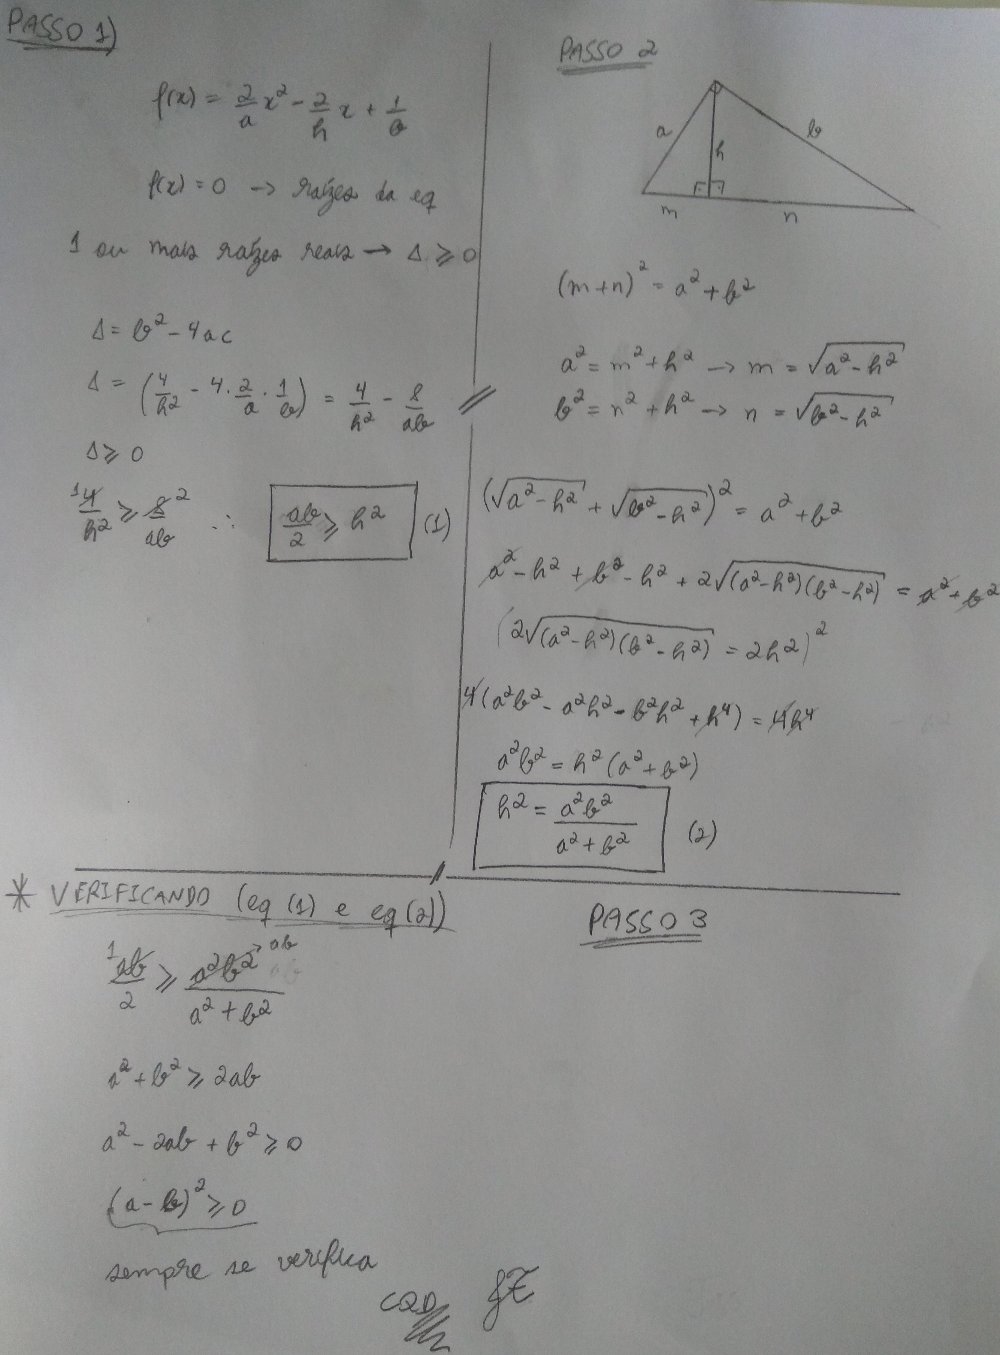 PASSO 1)
f(x) = 2/a x² - 2/h x + 1/b
f(x) = 0 → raízes da eq
1 ou mais raízes reais → Δ ≥ 0
Δ = b² - 4ac
Δ = (4/h² - 4·2/a·1/b) = 4/h² - 8/ab
Δ ≥ 0
1 4/h² ≥ 8/ab 2 ∴ ab/2 ≥ h² (1)
PASSO 2
a b h
m n
(m+n)² = a² + b²
a² = m² + h² → m = √(a² - h²)
b² = n² + h² → n = √(b² - h²)
(√(a² - h²) + √(b² - h²))² = a² + b²
a² - h² + b² - h² + 2√((a² - h²)(b² - h²)) = a² + b²
(2√((a² - h²)(b² - h²)) = 2h²)²
4(a²b² - a²h² - b²h² + h⁴) = 4h⁴
a²b² = h²(a² + b²)
h² = a²b²/(a² + b²) (2)
* VERIFICANDO (eq (1) e eq (2))
1 ab/2 ≥ a²b²/(a² + b²) → ab
a² + b² ≥ 2ab
a² - 2ab + b² ≥ 0
(a - b)² ≥ 0
sempre se verifica
CQD
PASSO 3